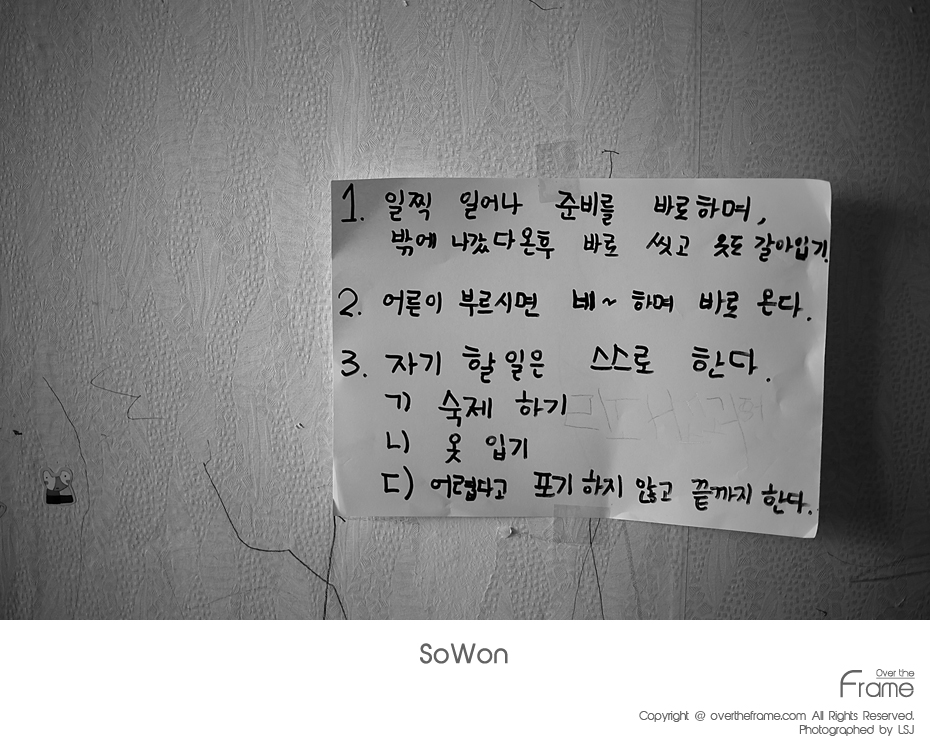 1. 일찍 일어나 준비를 바로하며,
밖에 나갔다온후 바로 씻고 옷도 갈아입기
2. 어른이 부르시면 네~ 하며 바로 온다.
3. 자기 할일은 스스로 한다.
ㄱ) 숙제 하기
ㄴ) 옷 입기
ㄷ) 어렵다고 포기 하지 않고 끝까지 한다.
SoWon
Over the
Frame
Copyright @ overtheframe.com All Rights Reserved.
Photographed by LSJ